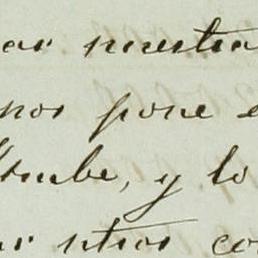 ar nuestra
nos pone e
y lo
ar otros co